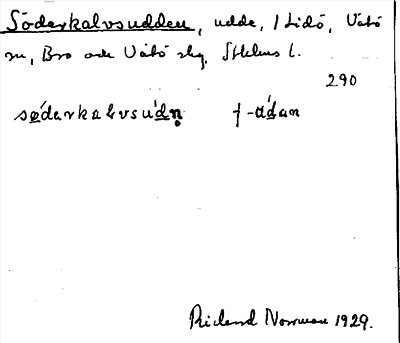 Söderkalvsudden, udde, 1 Lidö, Vätö
sn, Bro och Vätö skg, Sthlms l.
290
sødarkalvsúdn̥ ɟ -údan
Rickard Norrman 1929.